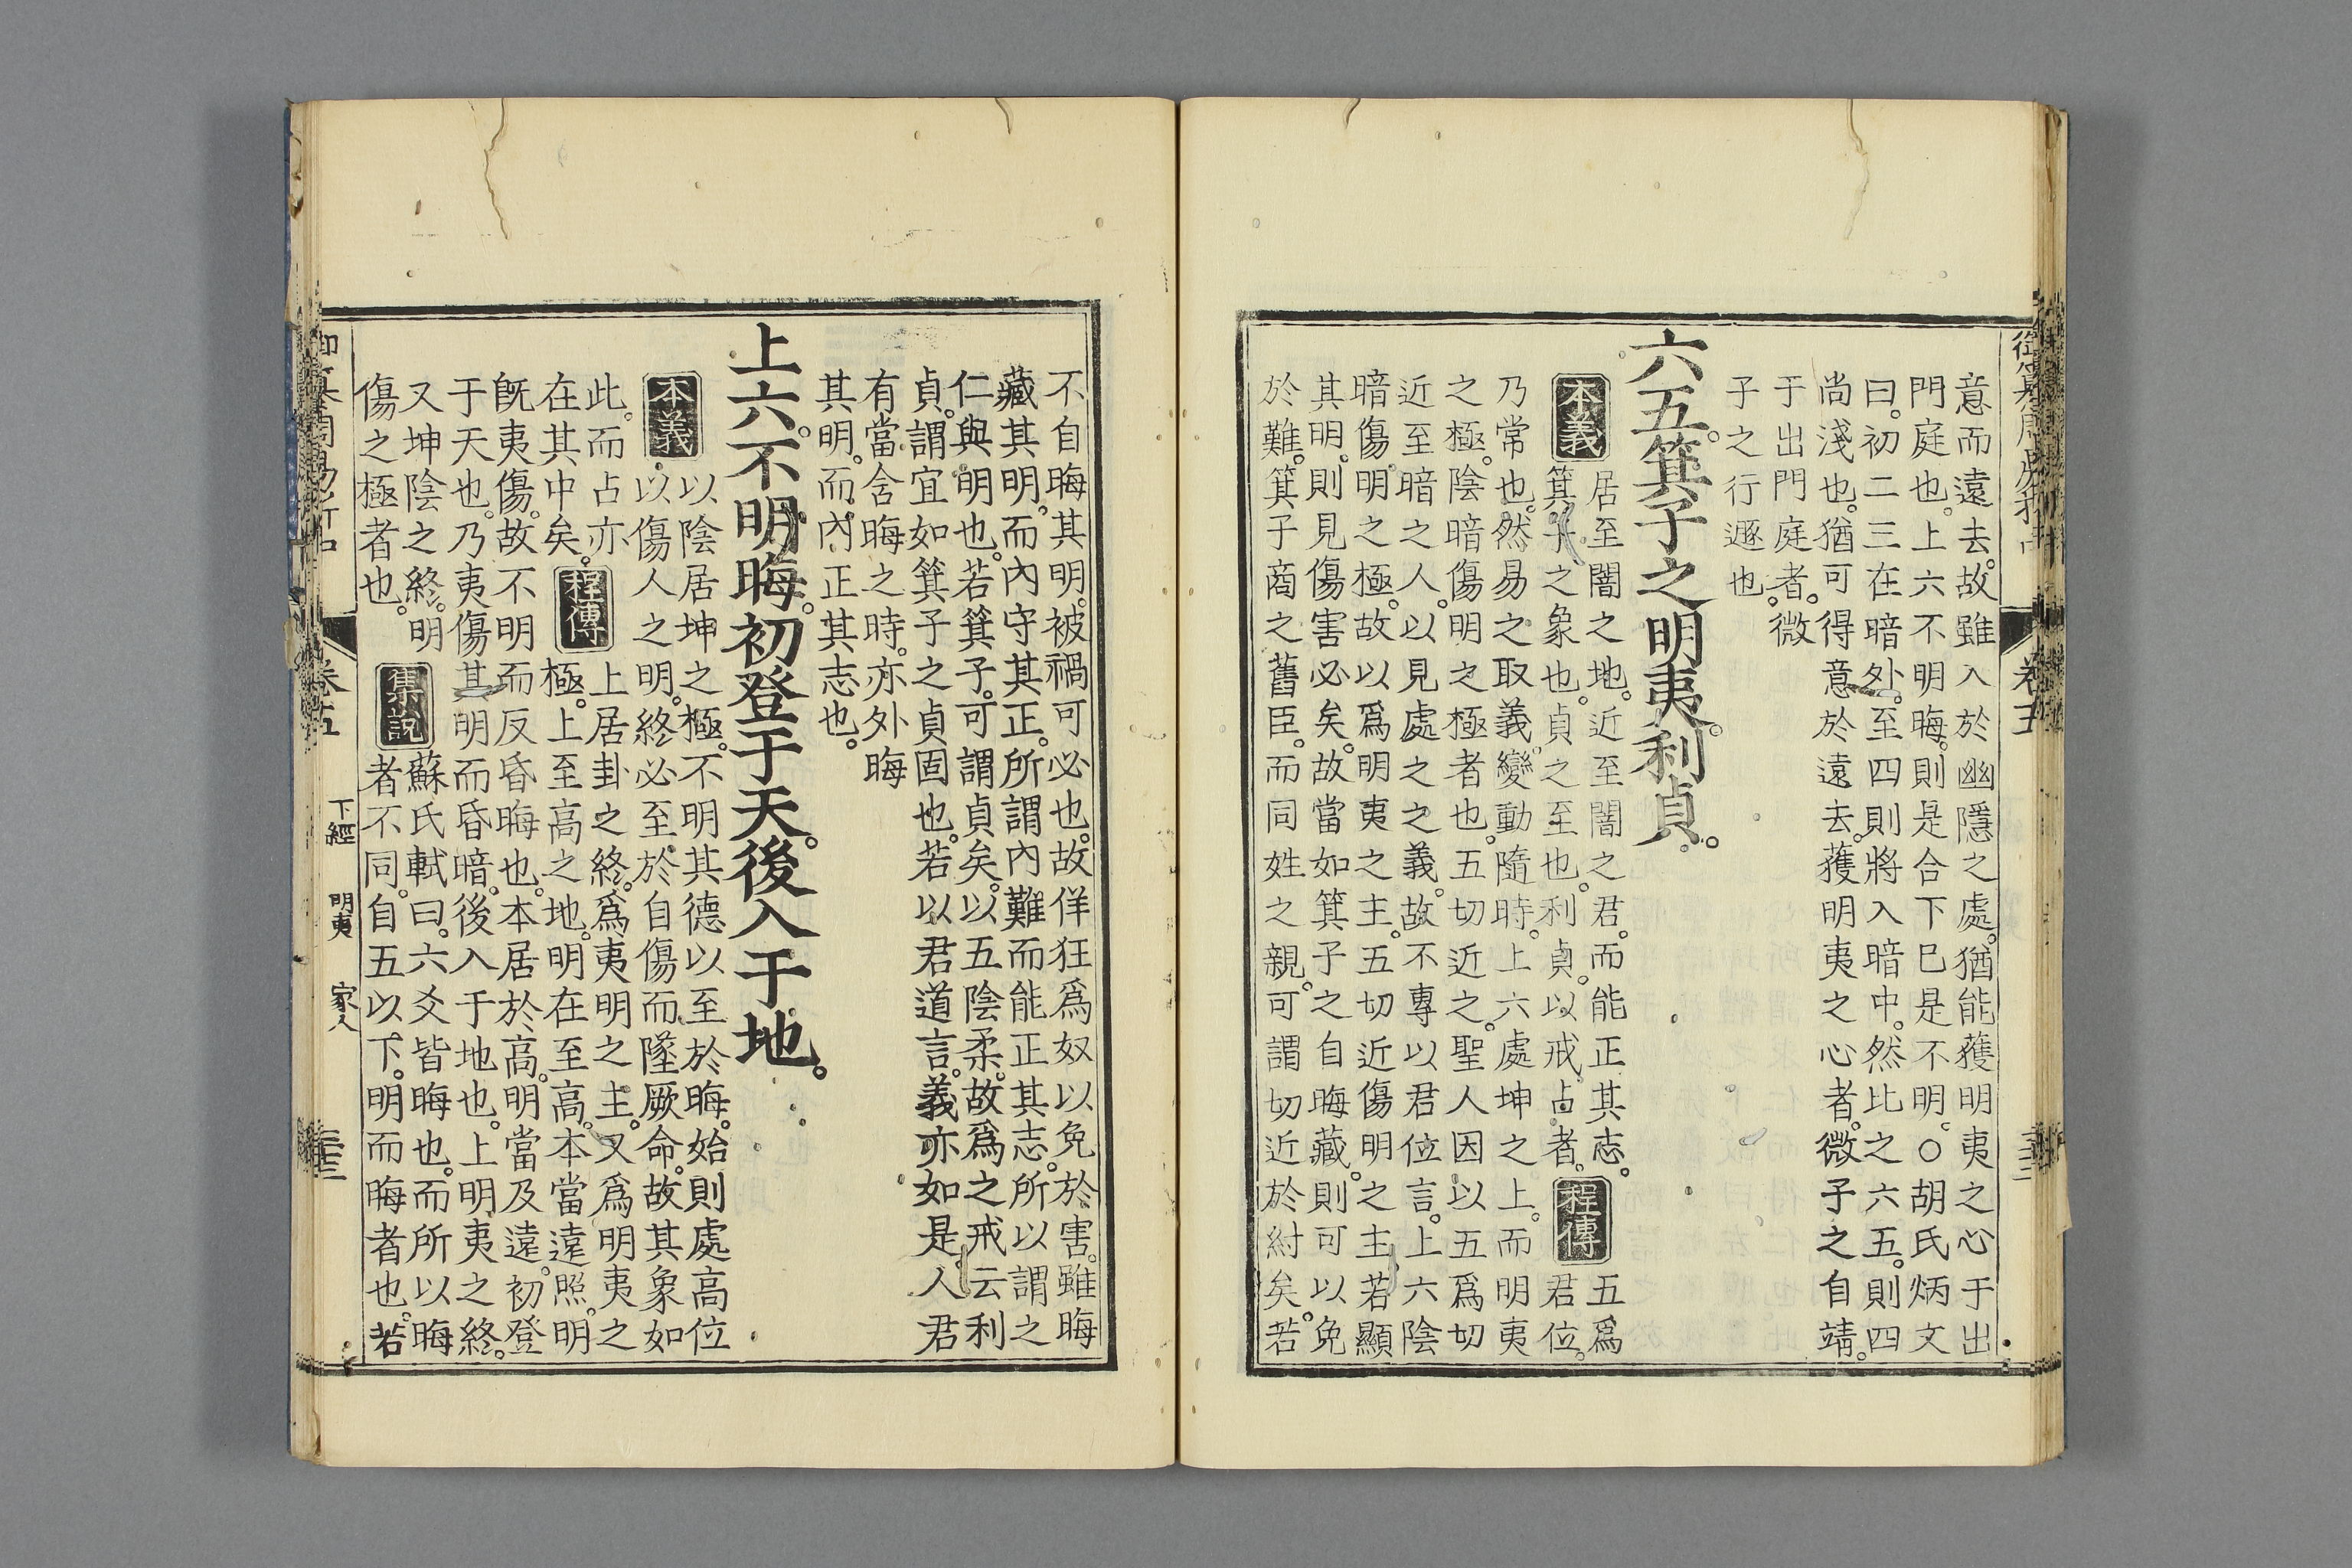 意而遠去。故雖入於幽隱之處。猶能獲明夷之心于出
門庭也。上六不明晦。則是合下巳是不明。○胡氏炳文
曰。初二三在暗外。至四則將入暗中。然比之六五。則四
尚淺也。猶可得意於遠去。獲明夷之心者。微子之自靖。
于出門庭者。微
子之行遯也。
六五。箕子之明夷。利貞。
本義
居至闇之地。近至闇之君。而能正其志。
箕子之象也。貞之至也。利貞。以戒占者。
程傳
五爲
君位。
乃常也。然易之取義。變動隨時。上六處坤之上。而明夷
之極。陰暗傷明之極者也。五切近之。聖人因以五爲切
近至暗之人。以見處之之義。故不專以君位言。上六陰
暗傷。明之極。故以爲明夷之主。五切近傷明之主。若顯
其明。則見傷害必矣。故當如箕子之自晦藏。則可以免
於難。箕子商之舊臣。而同姓之親。可謂切近於紂矣。若
不自晦其明。被禍可必也。故佯狂爲奴以免於害。雖晦
藏其明。而內守其正。所謂內難而能正其志。所以謂之
仁與明也。若箕子。可謂貞矣。以五陰柔。故爲之戒云利
貞。謂宜如箕子之貞固也。若以君道言。義亦如是。人君
有當含晦之時。亦外晦
其明。而內正其志也。
上六。不明晦。初登于天。後入于地。
本義
以陰居坤之極。不明其德以至於晦。始則處高位
以傷人之明。終必至於自傷而墜厥命。故其象如
此。而占亦
在其中矣。
程傳
上居卦之終。爲夷明之主。又爲明夷之
極。上至高之地。明在至高。本當遠照。明
既夷傷。故不明而反昏晦也。本居於高。明當及遠。初登
于天也。乃夷傷其明而昏暗。後入于地也。上明夷之終。
又坤陰之終。明
傷之極者也。
集說
蘇氏軾曰。六爻皆晦也。而所以晦
者不同。自五以下。明而晦者也。若
卷五
下經
明夷
家人